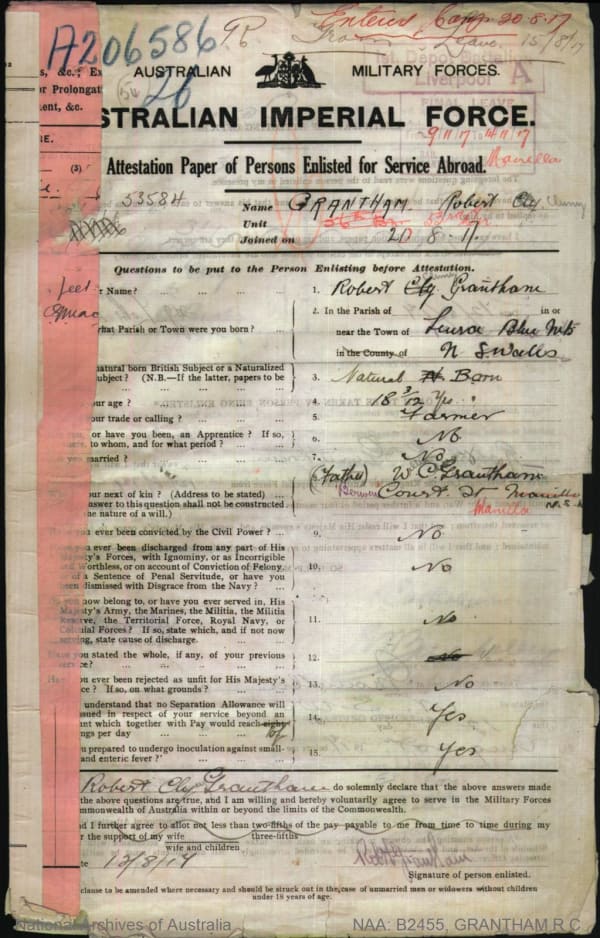 A206586
Enters Camp 20-8-17
From Leave 15/8/17
AUSTRALIAN MILITARY FORCES.
26
Liverpool
A
FINAL LEAVE
9 11 17 14 11 17
Manilla
s, &c.; Ex
or Prolongat
ent, &c.
STRALIAN IMPERIAL FORCE.
(3)
Attestation Paper of Persons Enlisted for Service Abroad.
53584
Name GRANTHAM Robert Cly
Unit 36th Bn
Joined on 20 8 17.
Questions to be put to the Person Enlisting before Attestation.
feet
r Name? 1. Robert Cly Grantham
2. In the Parish of in or
what Parish or Town were you born? near the Town of Leura Blue Mts
in the County of N S Wales
natural born British Subject or a Naturalized
ubject? (N.B.—If the latter, papers to be 3. Natural Born
ur age? 4. 18 3/12 yrs
our trade or calling? 5. Farmer
, or have you been, an Apprentice? If so,
e, to whom, and for what period? 6. No
u married? 7. No
(Father) W C Grantham
our next of kin? (Address to be stated)
Court St Manilla
answer to this question shall not be constructed
ne nature of a will.)
Manilla N.S.W
you ever been convicted by the Civil Power? 9. No
you ever been discharged from any part of His
Majesty's Forces, with Ignominy, or as Incorrigible
and Worthless, or on account of Conviction of Felony, 10. No
or of a Sentence of Penal Servitude, or have you
been dismissed with Disgrace from the Navy?
you now belong to, or have you ever served in, His
Majesty's Army, the Marines, the Militia, the Militia
Reserve, the Territorial Force, Royal Navy, or 11. No
Colonial Forces? If so, state which, and if not now
serving, state cause of discharge.
Have you stated the whole, if any, of your previous
service? 12. No
Ha you ever been rejected as unfit for His Majesty's
ce? If so, on what grounds? 13. No
understand that no Separation Allowance will
issued in respect of your service beyond an
nt which together with Pay would reach eight 14. Yes
ngs per day 10/-
you prepared to undergo inoculation against small-
and enteric fever? 15. Yes
Robert Cly Grantham do solemnly declare that the above answers made
the above questions are true, and I am willing and hereby voluntarily agree to serve in the Military Forces
mmonwealth of Australia within or beyond the limits of the Commonwealth.
nd I further agree to allot not less than two-fifths of the pay payable to me from time to time during my
three-fifths
r the support of my wife
wife and children
te
Signature of person enlisted.
clause to be amended where necessary and should be struck out in the case of unmarried men or widowers without children
under 18 years of age.
National Archives of Australia
NAA: B2455, GRANTHAM R C